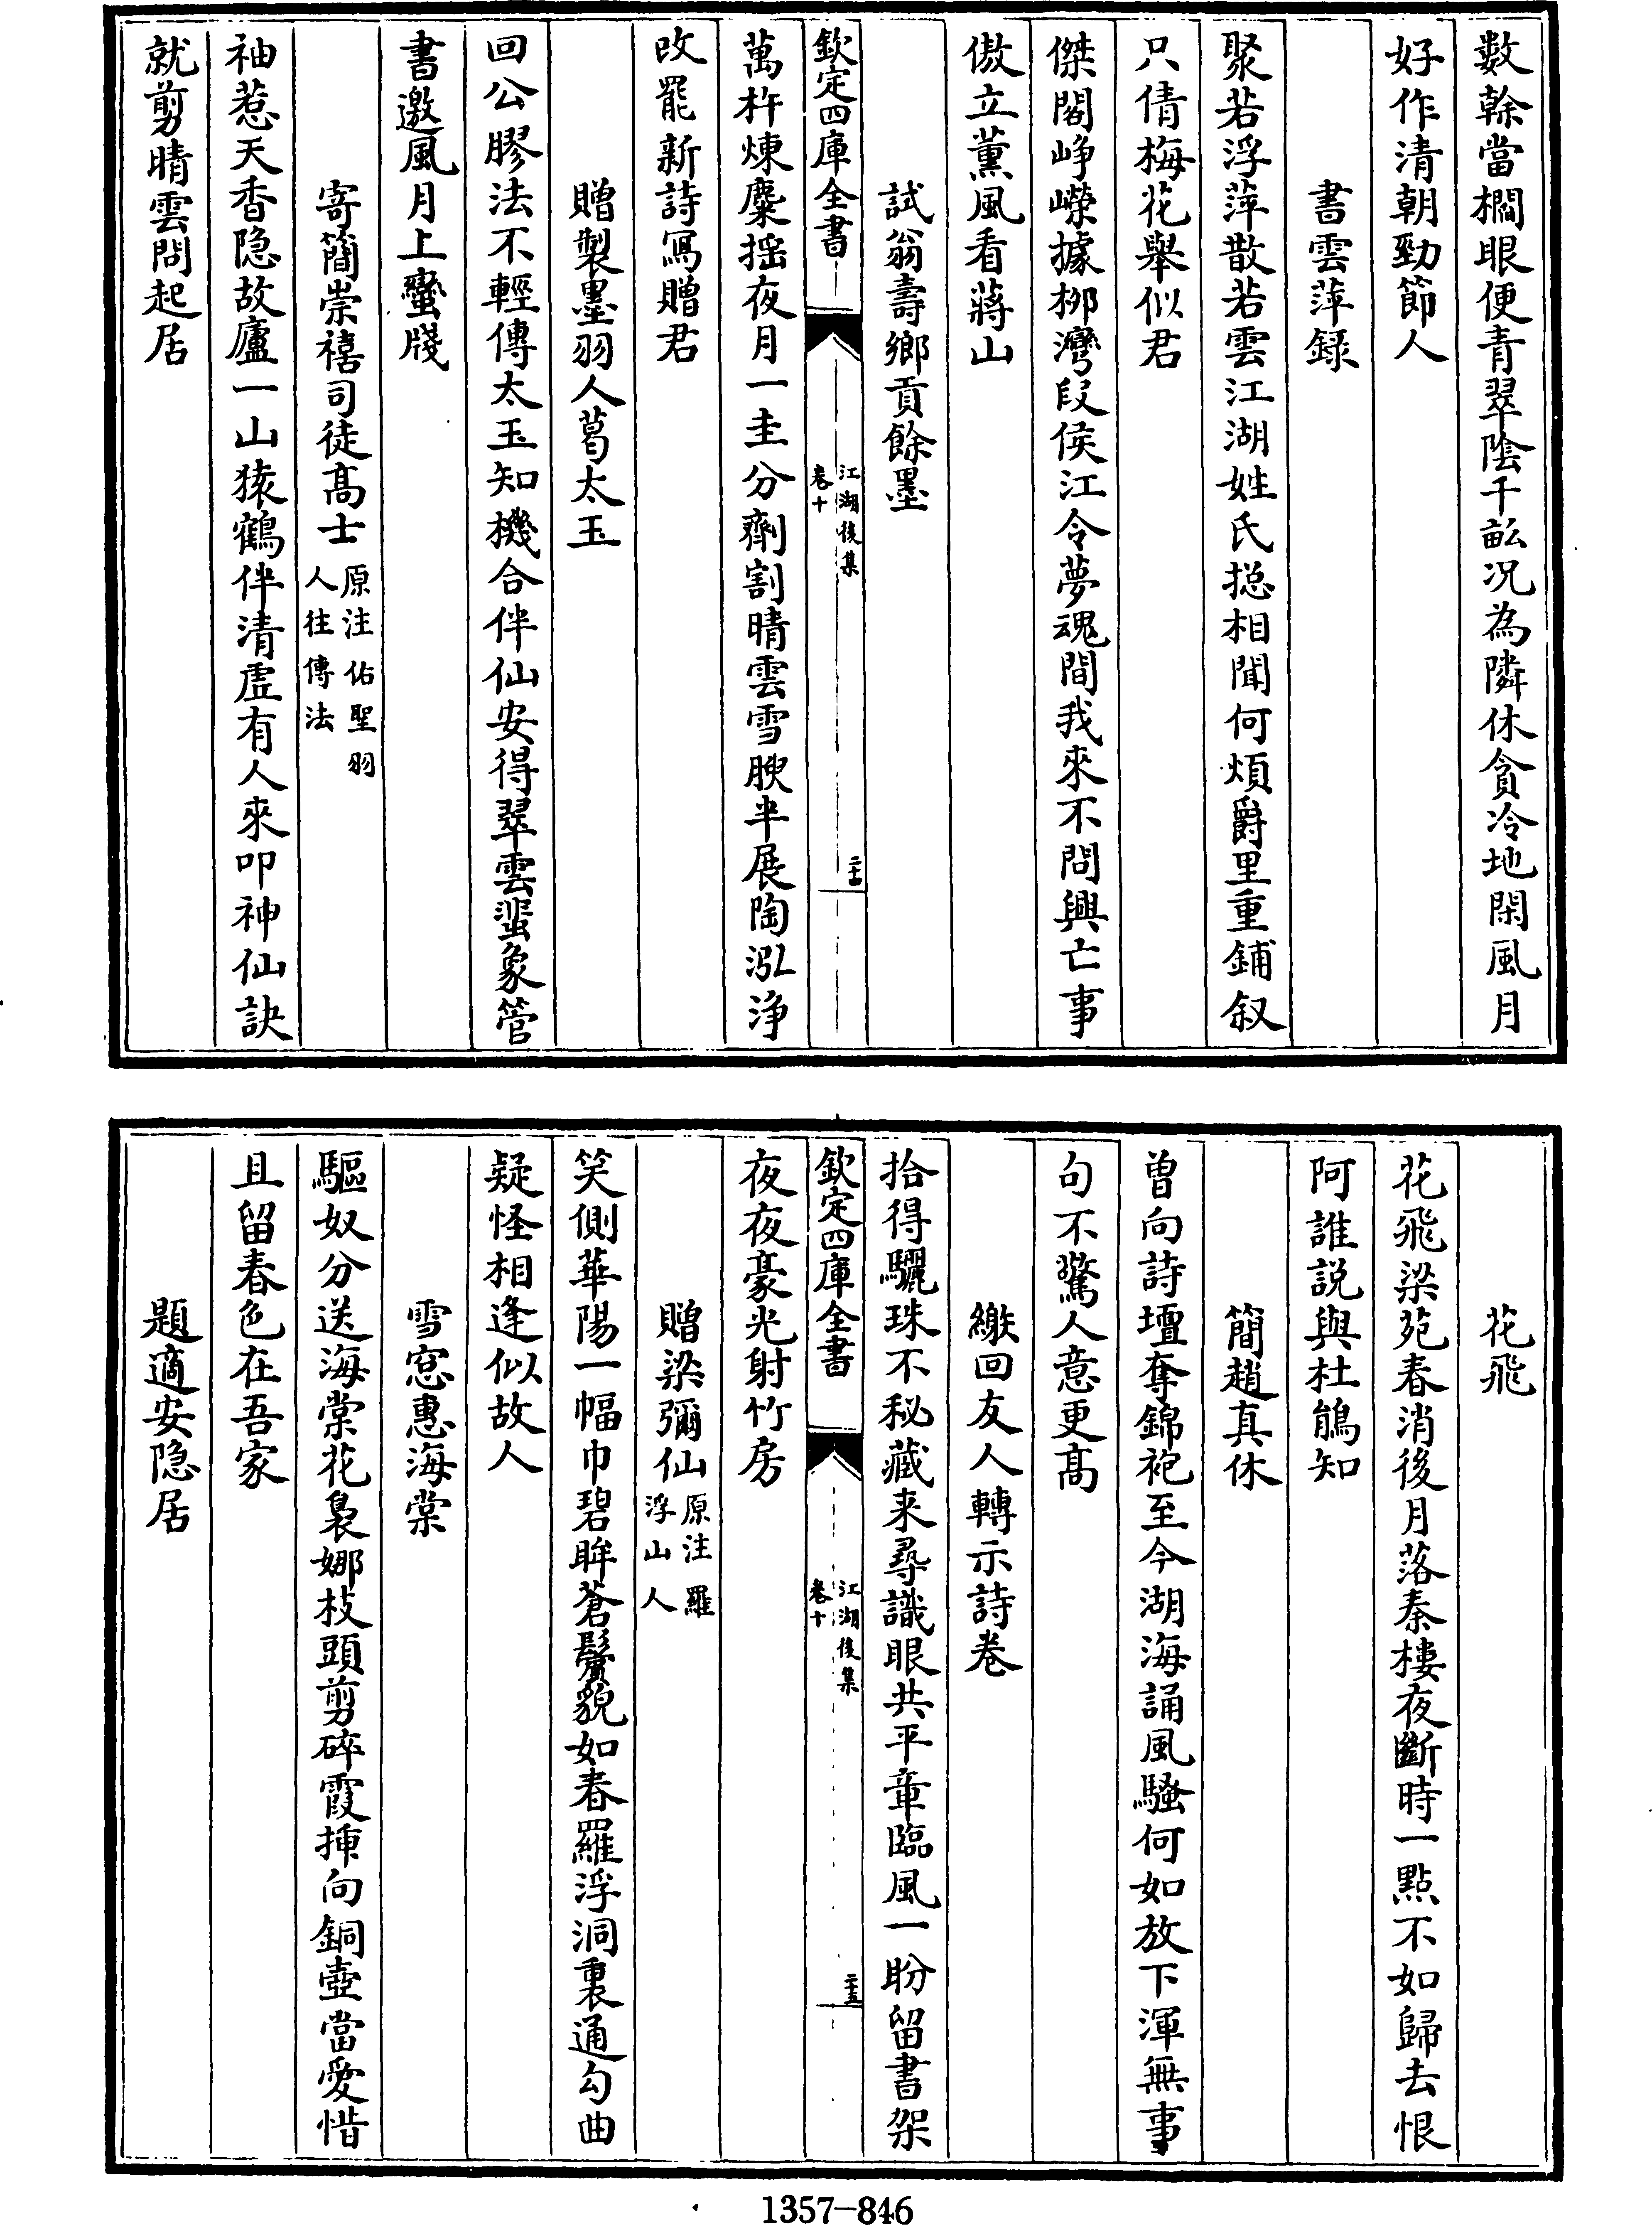 數榦當櫚眼便青翠陰千畝况為隣休貪冷地閑風月
好作清朝勁節人
書雲萍録
聚若浮萍散若雲江湖姓氏捴相聞何煩爵里重鋪叙
只倩梅花舉似君
傑閣崢嶸據栁灣段侯江令夢魂間我來不問興亡事
傲立薰風看蔣山
試翁壽鄉貢餘墨
欽定四庫全書
江湖後集
卷十
二十四
萬杵煉麋揺夜月一圭分劑割晴雲雪腴半展陶泓浄
改罷新詩冩贈君
贈製墨羽人葛太玉
回公膠法不輕傳太玉知機合伴仙安得翠雲蜚象管
書邀風月上蠻牋
寄簡崇禧司徒髙士原注佑聖羽
人往傳法
袖惹天香隐故廬一山猿鶴伴清虛有人來叩神仙訣
就剪晴雲問起居
花飛
花飛梁苑春消後月落秦樓夜斷時一點不如歸去恨
阿誰説與杜鵑知
簡趙真休
曽向詩壇奪錦袍至今湖海誦風騷何如放下渾無事
句不驚人意更髙
繳回友人轉示詩卷
拾得驪珠不秘藏来尋識眼共平章臨風一盼留書架
欽定四庫全書
江湖後集
卷十
二十五
夜夜豪光射竹房
贈梁彌仙原注羅
浮山人
笑側華陽一幅巾碧眸蒼鬢貌如春羅浮洞裏通勾曲
疑怪相逢似故人
雪窓惠海棠
驅奴分送海棠花裊娜枝頭剪碎霞揷向銅壺當愛惜
且留春色在吾家
題適安隐居
1357-846